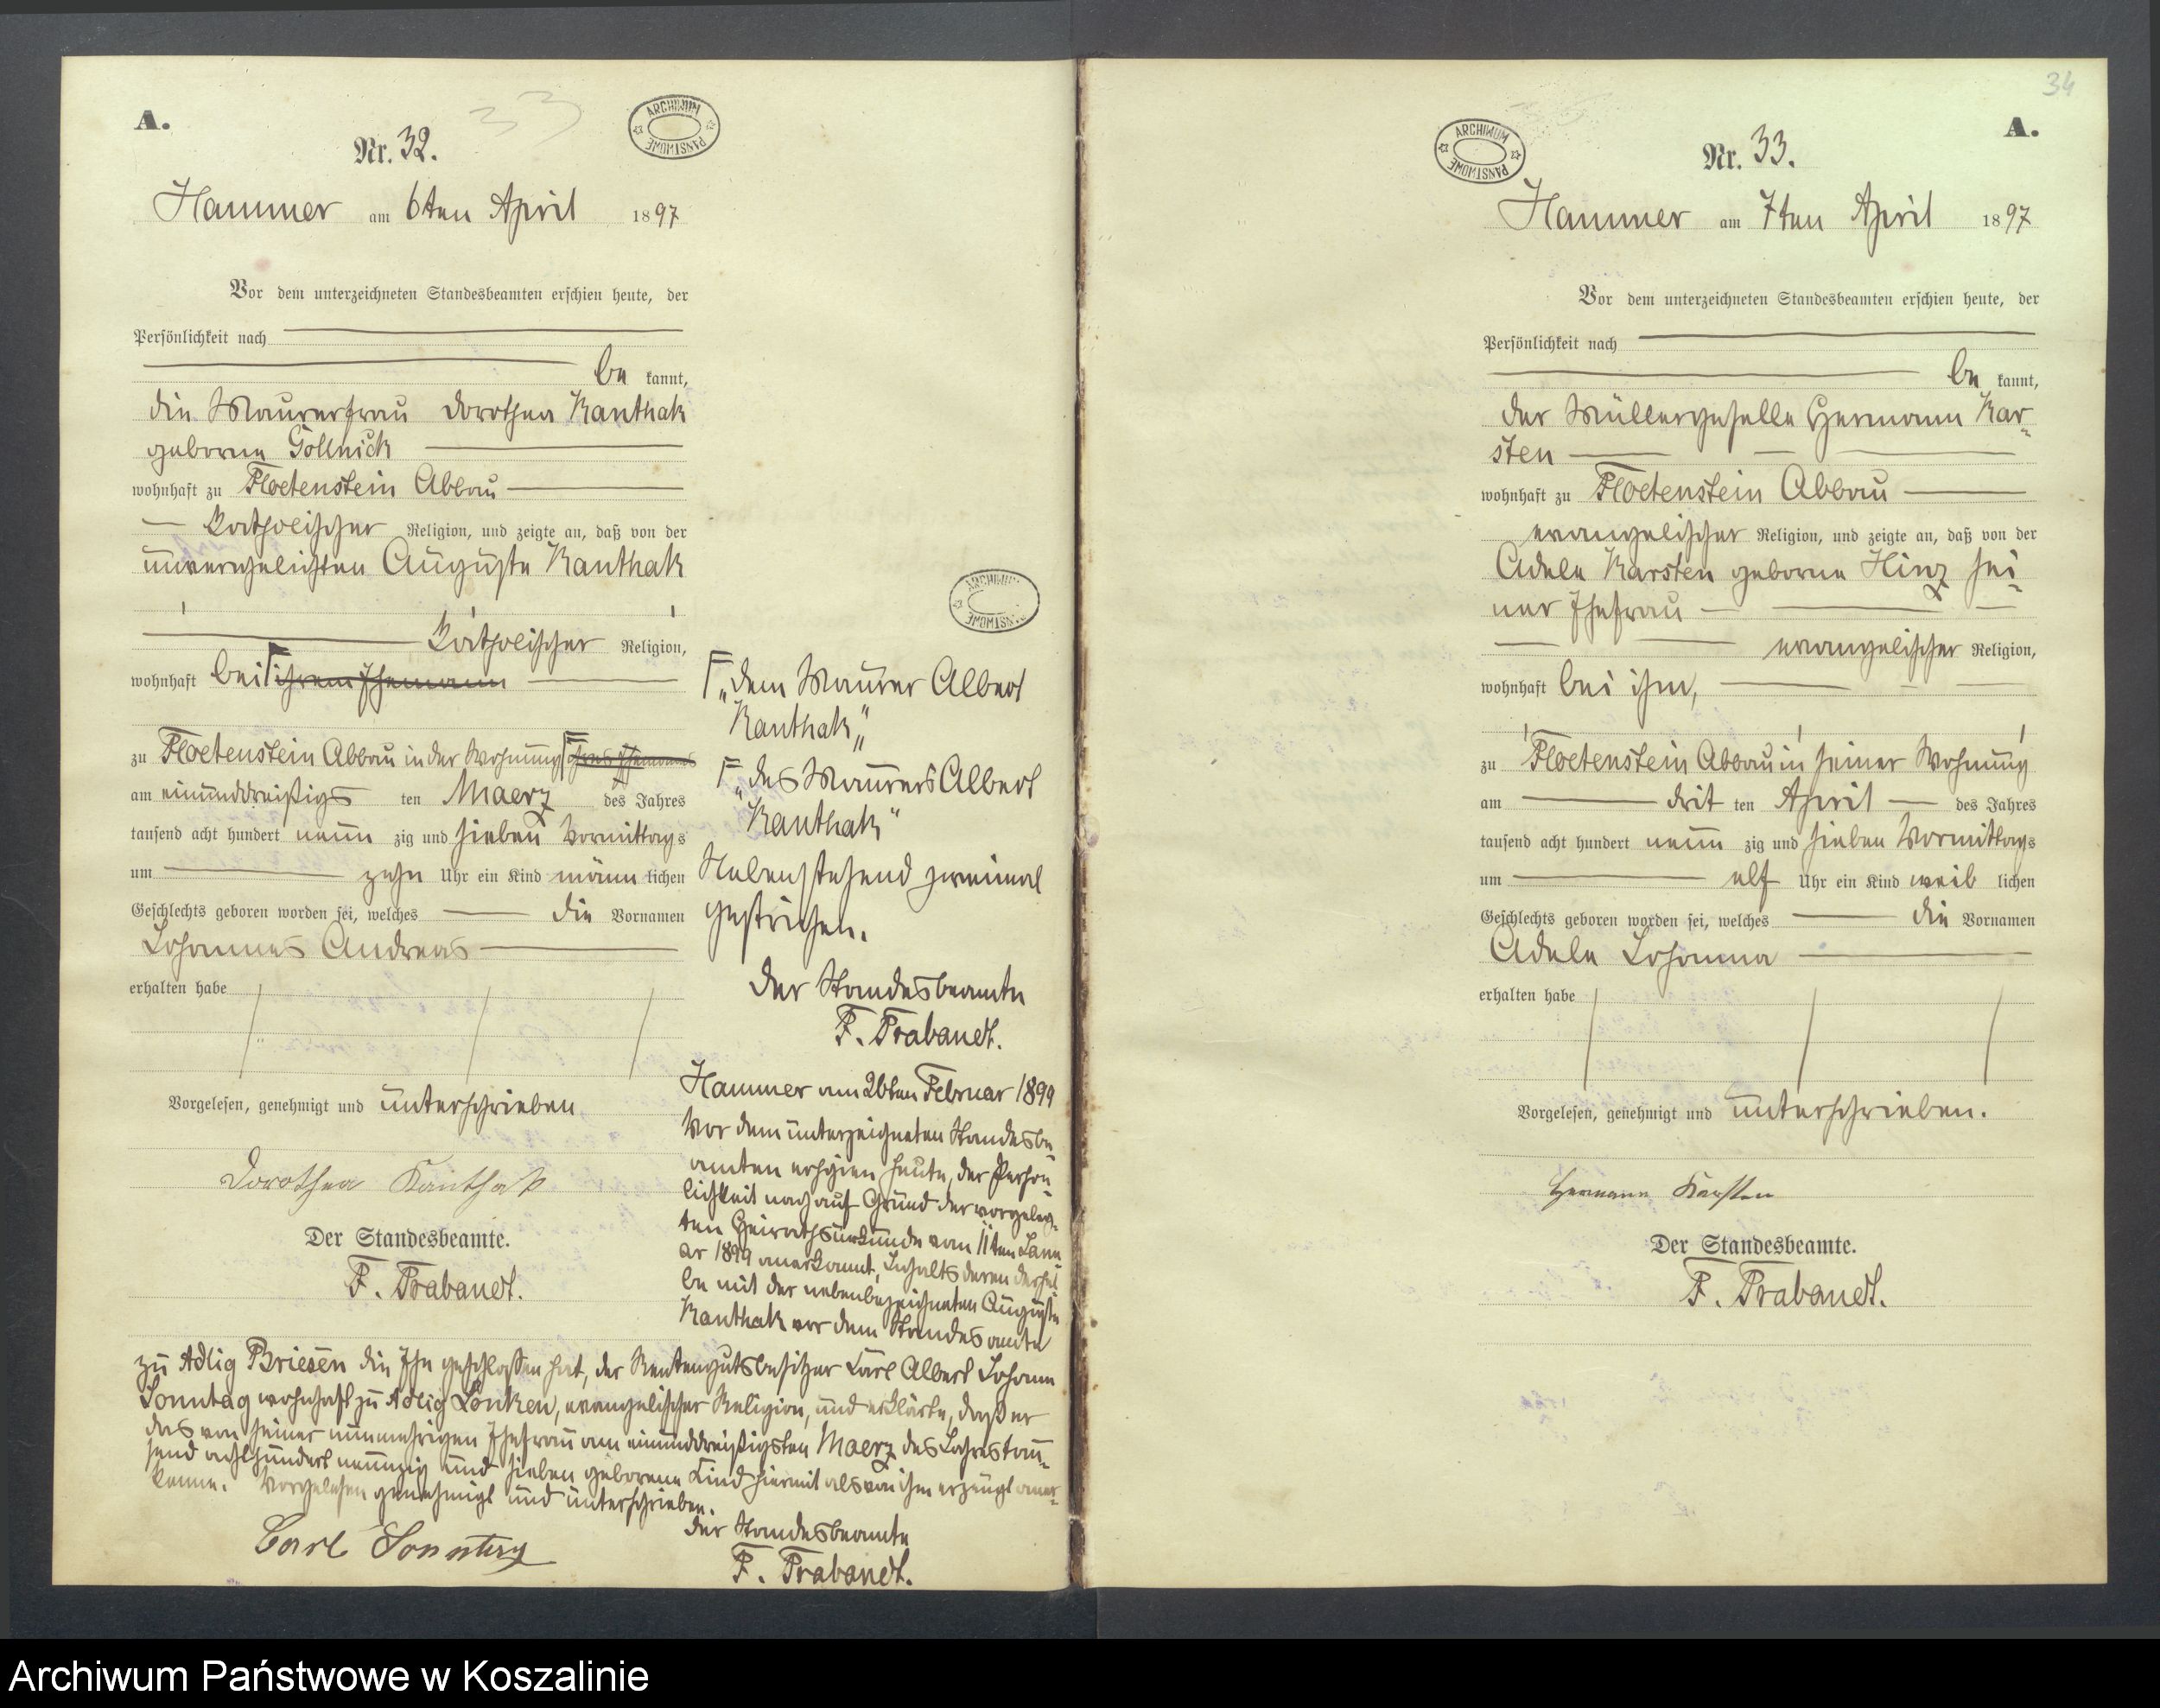 A.
33
ARCHIWUM PAŃSTWOWE
Nr. 32.
Hammer am 6ten April 1897
Vor dem unterzeichneten Standesbeamten erschien heute, der
Persönlichkeit nach
be kannt,
die Maurerfrau Dorothea Kanthak
geborne Gollnick
wohnhaft zu Floetenstein Abbau
katholischer Religion, und zeigte an, daß von der
unverehelichten Auguste Kanthak
katholischer Religion,
wohnhaft bei ihrem Ehemann
zu Floetenstein Abbau in der Wohnung ihres Ehemannes
am einunddreißigs ten Maerz des Jahres
tausend acht hundert neun zig und sieben Vormittags
um zehn Uhr ein Kind männ lichen
Geschlechts geboren worden sei, welches die Vornamen
Johannes Andreas
erhalten habe
Vorgelesen, genehmigt und unterschrieben
Dorothea Kanthak
Der Standesbeamte.
F. Trabandt.
ARCHIWUM PAŃSTWOWE
„dem Maurer Albert
Kanthak„
„des Maurers Albert
Kanthak"
Nebenstehend zweimal
gestrichen.
Der Standesbeamte
F. Trabandt.
Hammer am 26ten Februar 1899
Vor dem unterzeichneten Standesbe-
amten erschien heute, der Persön-
lichkeit nach auf Grund der vorgeleg-
ten Heirathsurkunde vom 11ten Janu-
ar 1899 anerkannt, Inhalts deren dersel-
be mit der nebenbezeichneten Auguste
Kanthak vor dem Standesamte
zu Adlig Briesen die Ehe geschlossen hat, der Rentengutsbesitzer Carl Albert Johann
Sonntag wohnhaft zu Adlig Lonken, evangelischer Religion, und erklärte, daß er
das von seiner nunmehrigen Ehefrau am einunddreißigsten Maerz des Jahres tau-
send achthundert neunzig und sieben geborene Kind hiermit als von ihm erzeugt aner-
kenne. Vorgelesen genehmigt und unterschrieben.
Carl Sonntag
Der Standesbeamte
F. Trabandt.
34
A.
ARCHIWUM PAŃSTWOWE
Nr. 33.
Hammer am 7ten April 1897
Vor dem unterzeichneten Standesbeamten erschien heute, der
Persönlichkeit nach
be kannt,
der Müllergeselle Hermann Kar-
sten
wohnhaft zu Floetenstein Abbau
evangelischer Religion, und zeigte an, daß von der
Adele Karsten geborne Hinz sei-
ner Ehefrau
evangelischer Religion,
wohnhaft bei ihm,
zu Floetenstein Abbau in seiner Wohnung
am drit ten April des Jahres
tausend acht hundert neun zig und sieben Vormittags
um elf Uhr ein Kind weib lichen
Geschlechts geboren worden sei, welches die Vornamen
Adele Johanna
erhalten habe
Vorgelesen, genehmigt und unterschrieben.
Hermann Karsten
Der Standesbeamte.
F. Trabandt.
Archiwum Państwowe w Koszalinie